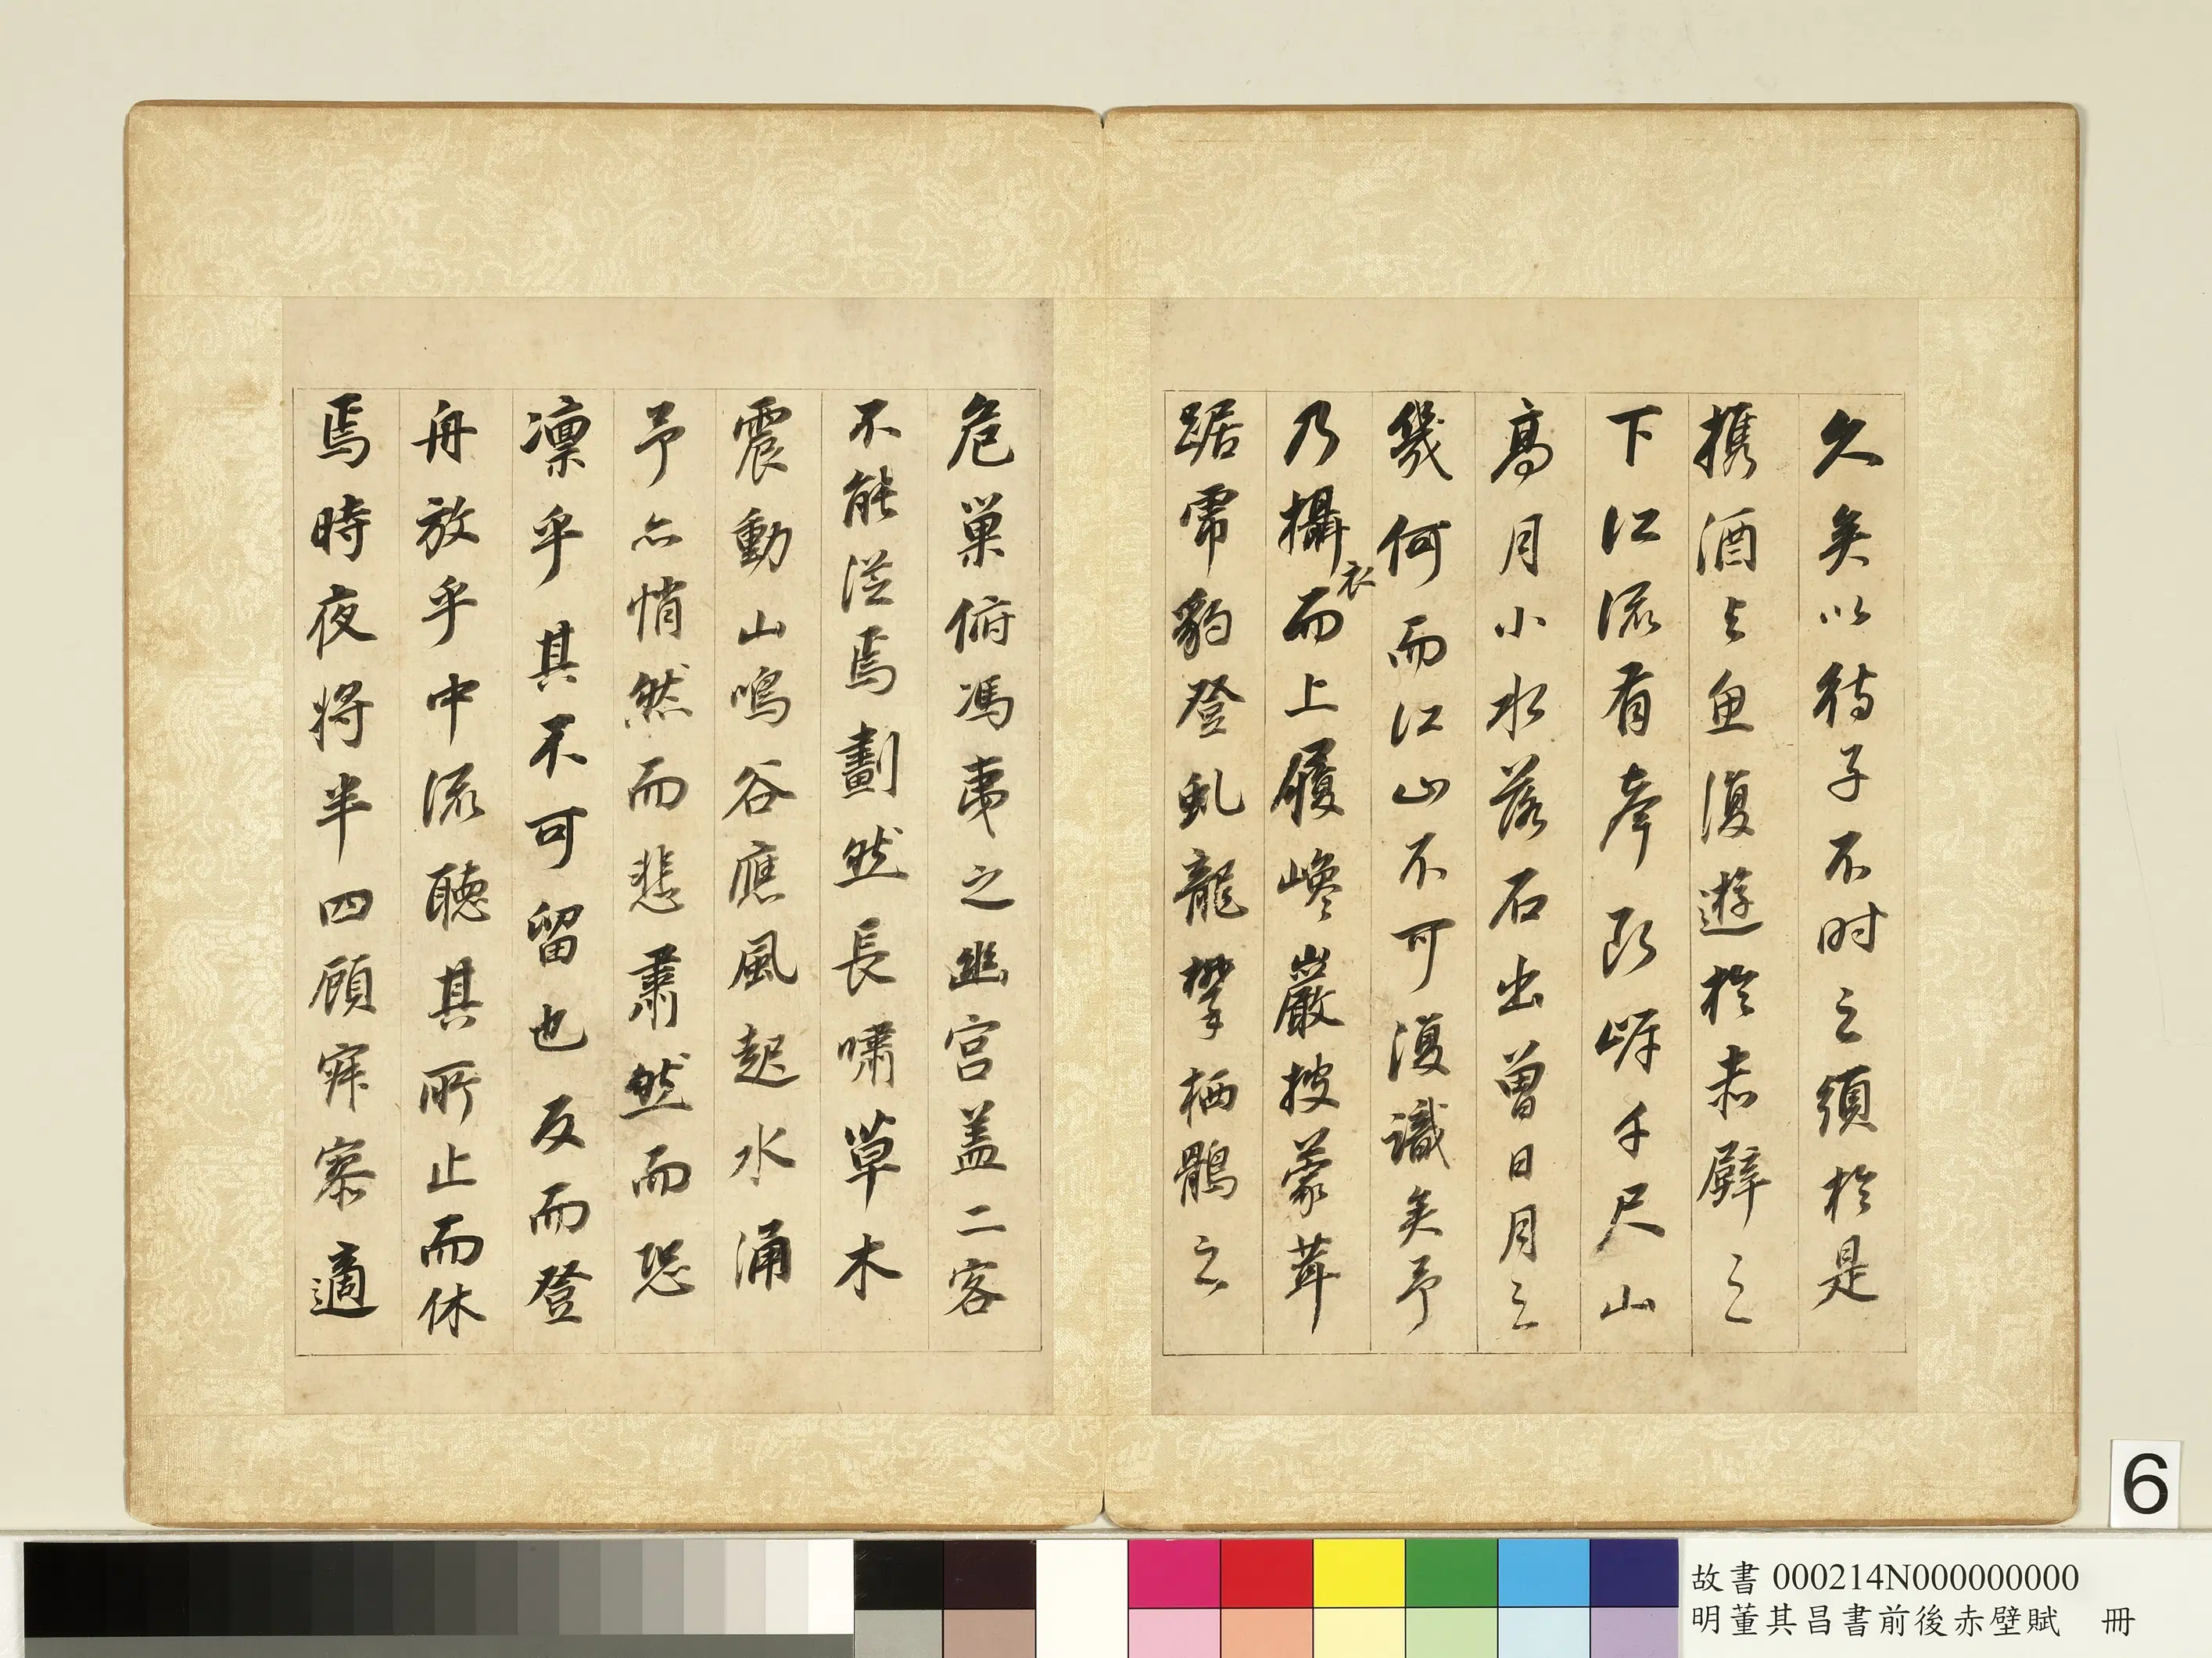 久矣以待子不时之須於是
攜酒与魚復遊於赤壁之
下江流有聲斷岸千尺山
高月小水落石出曾日月之
幾何而江山不可復識矣予
乃攝衣而上履巉巖披蒙茸
踞虎豹登虬龍攀栖鶻之
危巢俯馮夷之幽宮盖二客
不能從焉劃然長嘯草木
震動山鳴谷應風起水涌
予亦悄然而悲肅然而恐
凜乎其不可留也反而登
舟放乎中流聽其所止而休
焉時夜將半四顧寂寥適
6
故書 000214N000000000
明董其昌書前後赤壁賦 冊